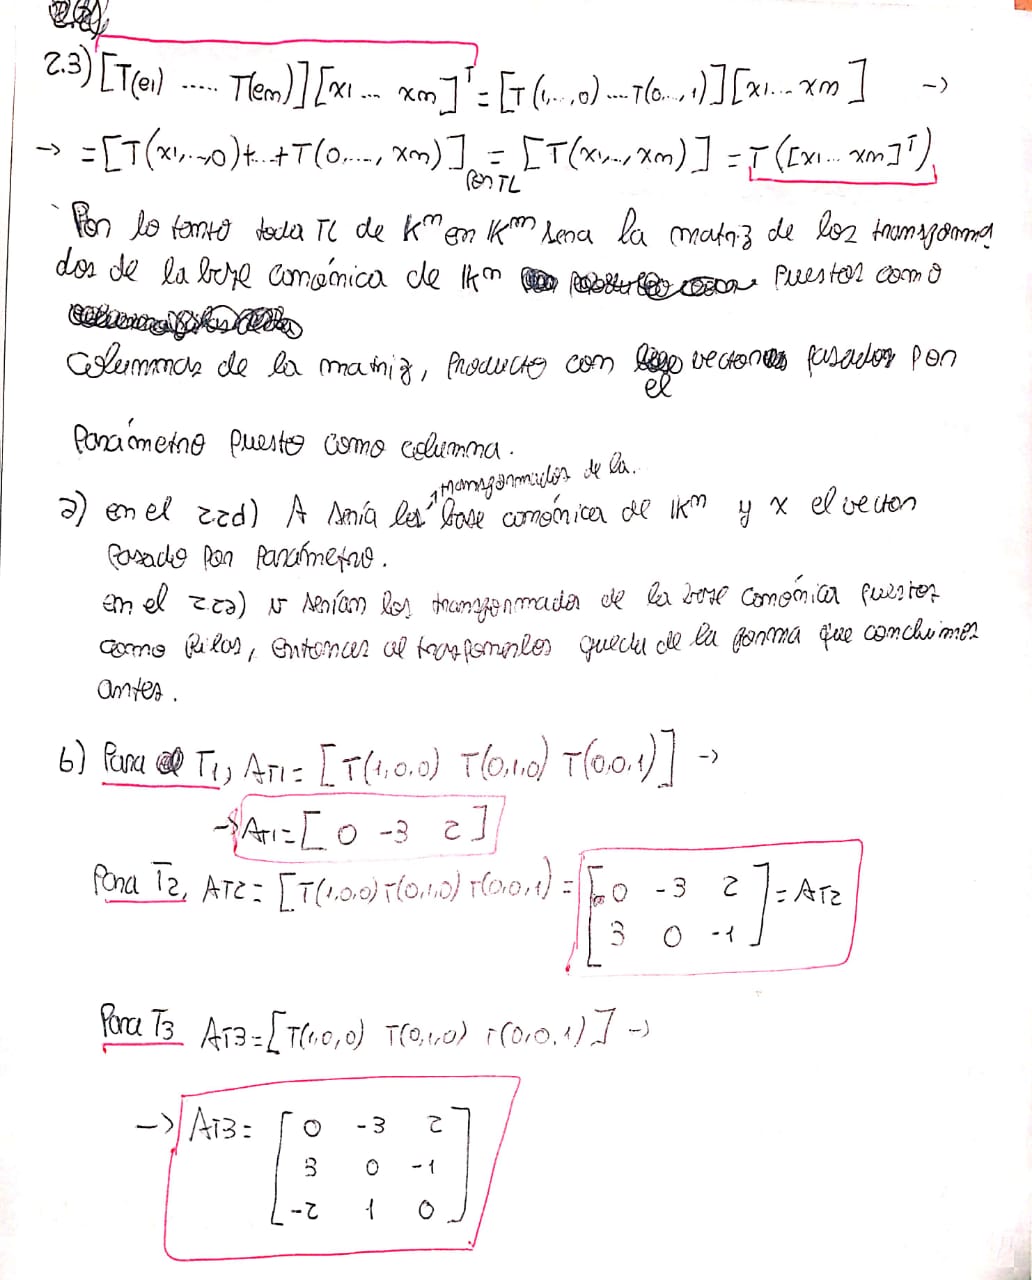 2.3) [T(e1) ..... T(em)][x1 ... xm]ᵀ = [T(1,...,0) .... T(0...,1)][x1...xm] ->
-> = [T(x1,..,0)+...+T(0,...., xm)] = [T(x1,..,xm)] = T([x1...xm]ᵀ)
Por TL
Por lo tanto toda TL de Kⁿ en Kᵐ sera la matriz de los transforma
dos de la base canónica de Kⁿ puestos como
columnas de la matriz, producto con el vector pasado por
parámetro puesto como columna.
a) en el 2.2d) A sería los transformados de la base canónica de Kⁿ y x el vector
pasado por parámetro.
en el 2.2a) v serían los transformados de la base canónica puestos
como filas, entonces al trasponerlos queda de la forma que concluimos
antes.
b) Para T1, AT1 = [T(1,0,0) T(0,1,0) T(0,0,1)] ->
-> AT1 = [0 -3 2]
Para T2, AT2 = [T(1,0,0) T(0,1,0) T(0,0,1) = [0 -3 2] = AT2
3 0 -1
Para T3 AT3 = [T(1,0,0) T(0,1,0) T(0,0,1)] ->
-> AT3 = [0 -3 2
3 0 -1
-2 1 0]